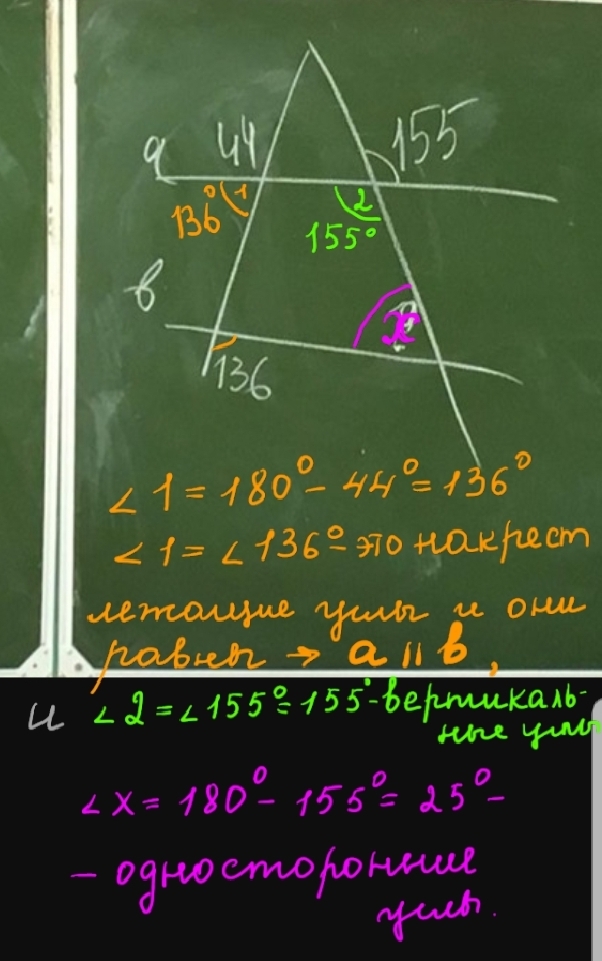 a 44 155
136° 1 2
155°
b x
136
∠1=180°-44°=136°
∠1=∠136°-это накрест
лежащие углы и они
равны → a || b,
и ∠2=∠155°=155°-вертикаль-
ные углы
∠x=180°-155°=25°-
- односторонние
углы.